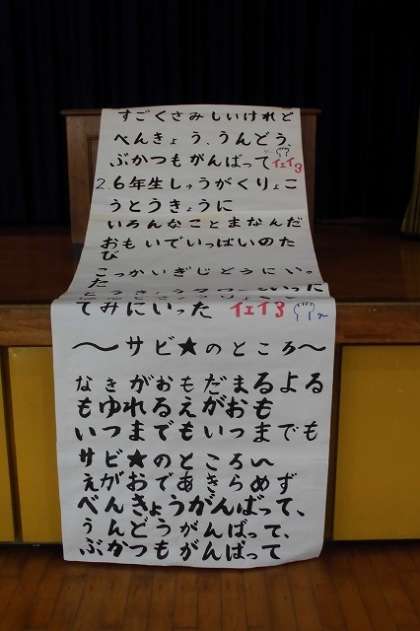 すごくさみしいけれど
べんきょう、うんどう、
ぶかつもがんばって イェイ3
2.6年生しゅうがくりょこ
うとうきょうに
いろんなことまなんだ
おもいでいっぱいのた
び
こっかいぎじどうにい。
た
てみにいった イェイ3
〜サビ★のところ〜
なきがおもだまるよる
もゆれるえがおも
いつまでもいつまでも
サビ★のところへ
えがおであきらめず
べんきょうがんばって、
うんどうがんばって、
ぶかつもがんばって